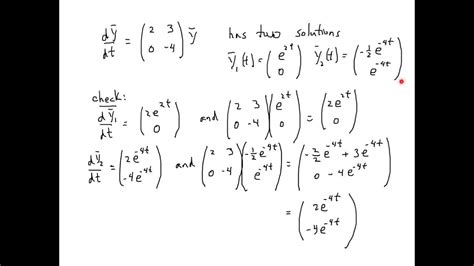 dȲ/dt = (2 3; 0 -4) Ȳ has two solutions
Ȳ₁(t) = (e^{2t}; 0) Ȳ₂(t) = (-½ e^{-4t}; e^{-4t})
check:
dȲ₁/dt = (2e^{2t}; 0) and (2 3; 0 -4)(e^{2t}; 0) = (2e^{2t}; 0)
dȲ₂/dt = (2e^{-4t}; -4e^{-4t}) and (2 3; 0 -4)(-½ e^{-4t}; e^{-4t}) = (-2/2 e^{-4t} + 3e^{-4t}; 0 - 4e^{-4t})
= (2e^{-4t}; -4e^{-4t})